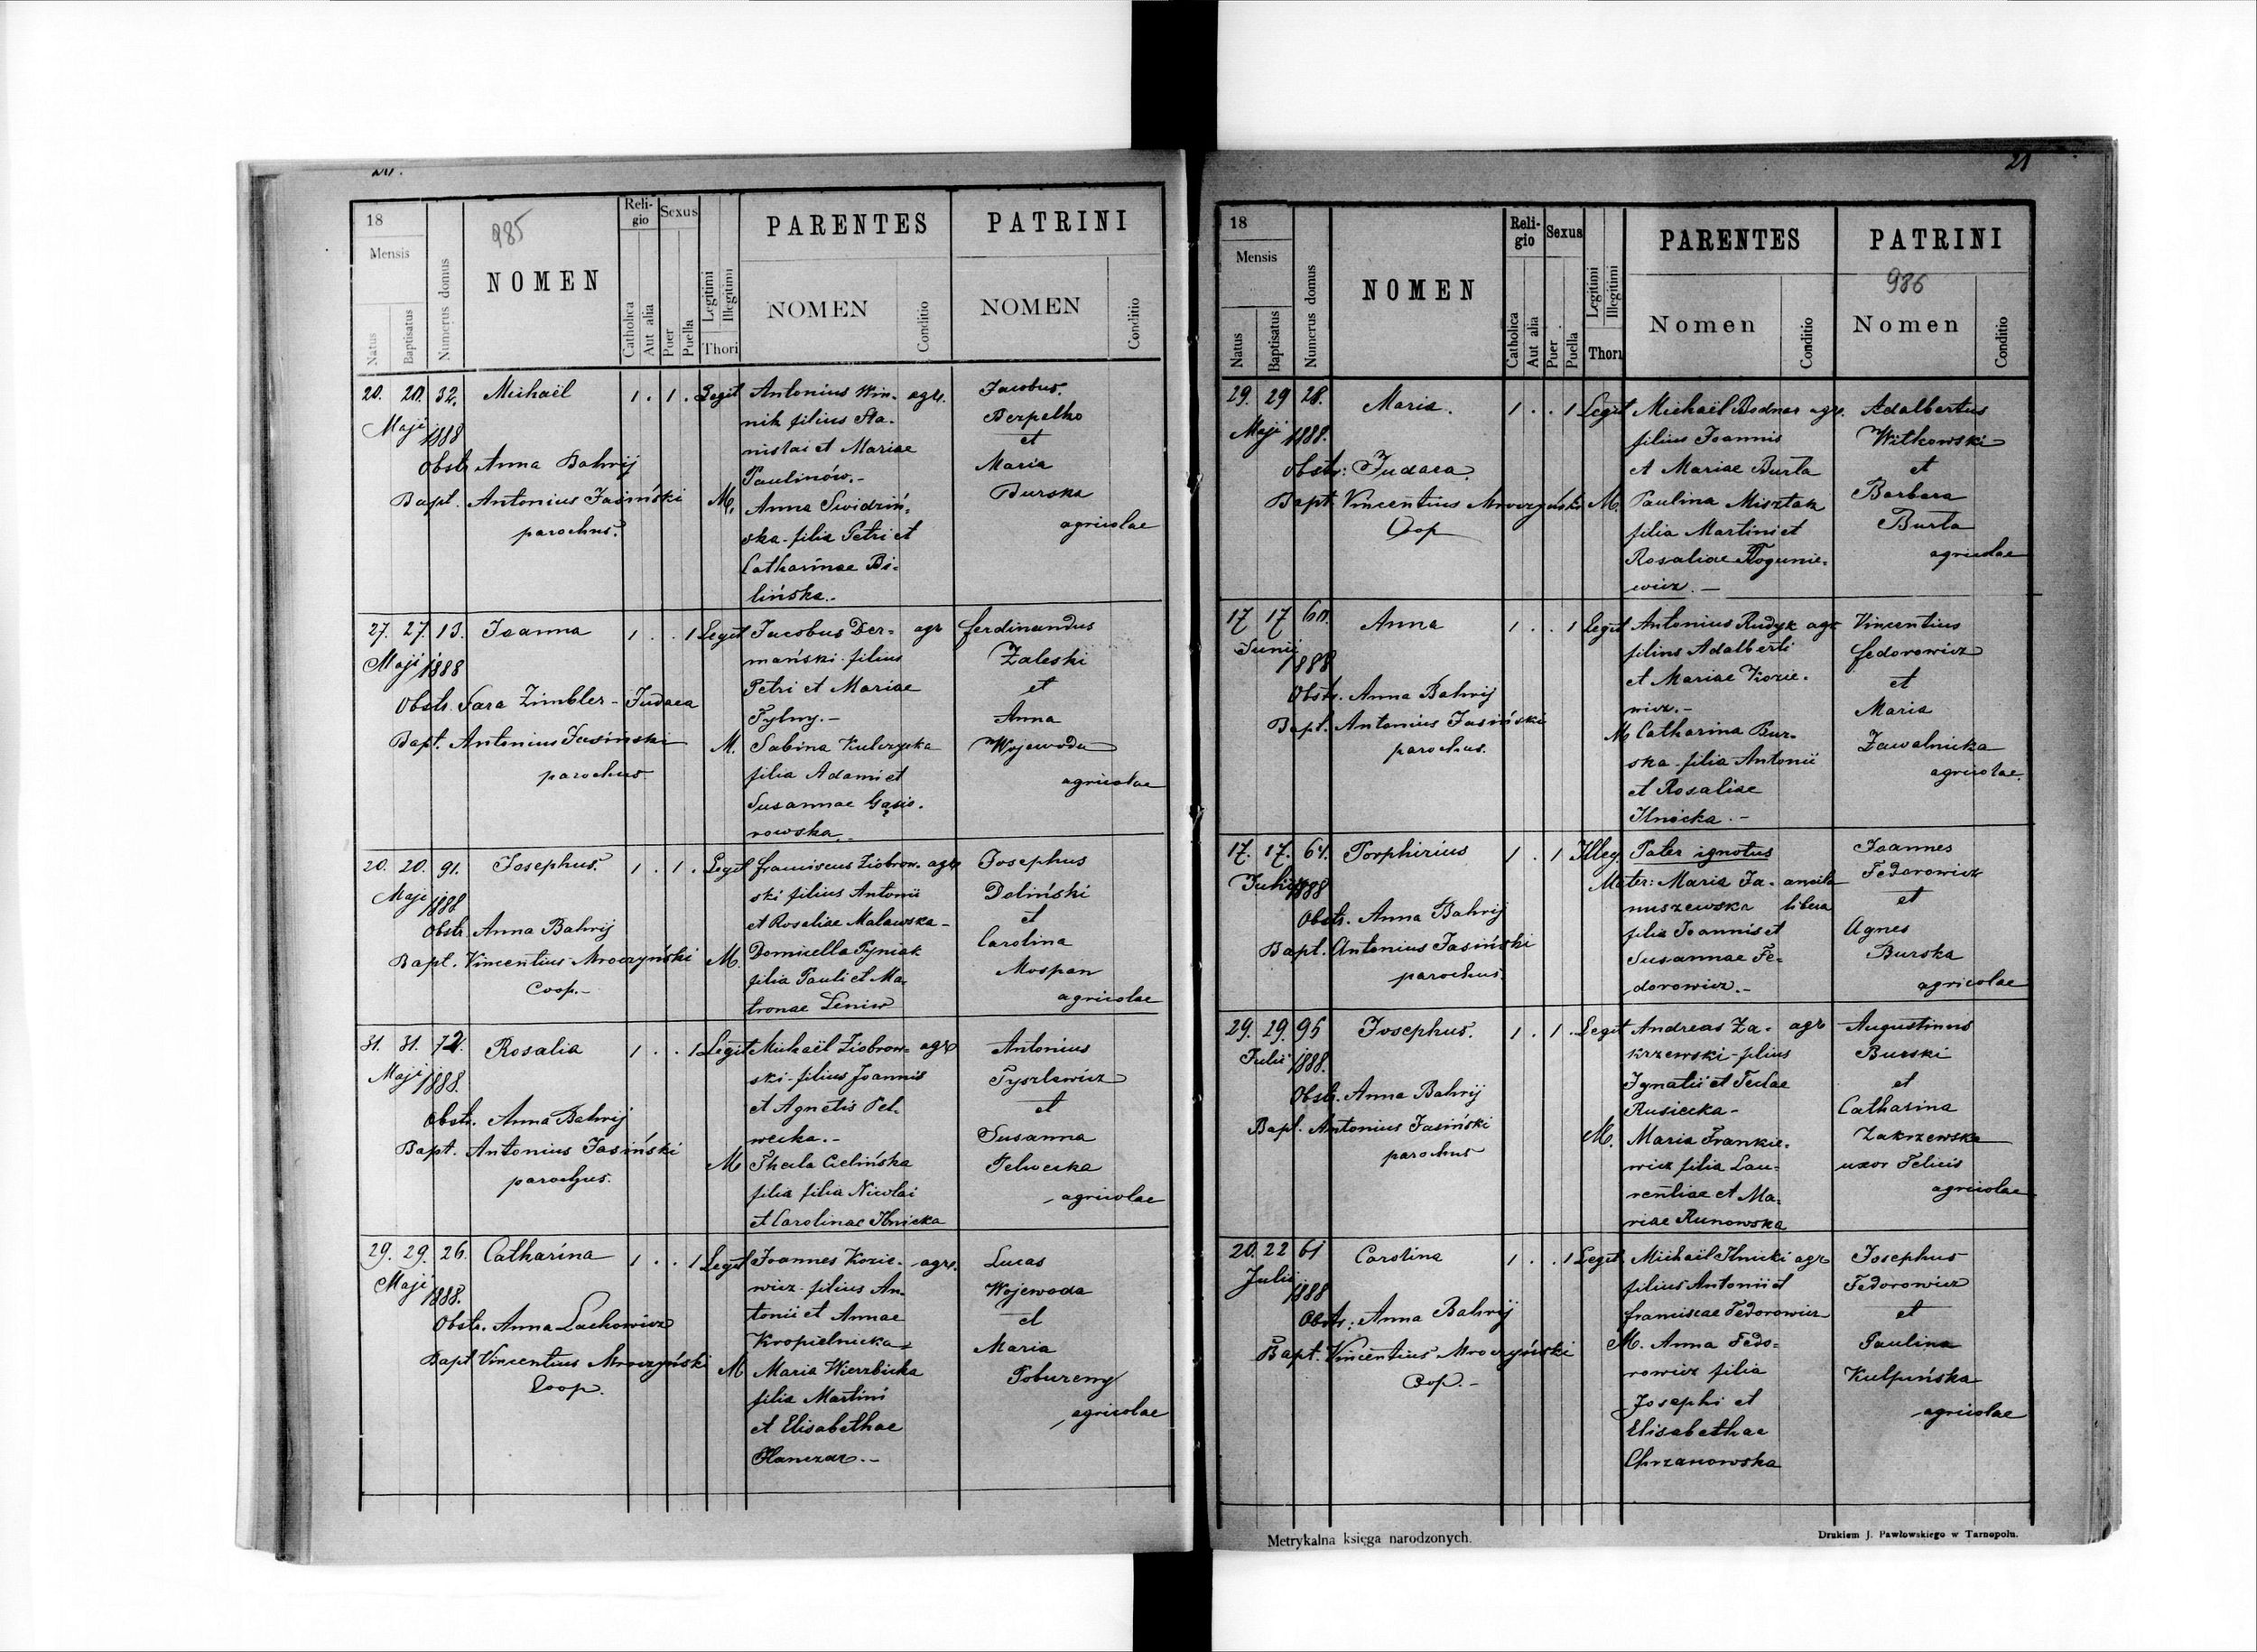 985
18
Mensis
Natus
Baptisatus
Numerus domus
NOMEN
Reli-
gio
Catholica
Aut alia
Sexus
Puer
Puella
Legitimi
Illegitimi
Thori
PARENTES
NOMEN
Conditio
PATRINI
NOMEN
Conditio
20. 20. 32. Michaël 1 . 1 . Legit Antonius Win- agr. Jacobus
Maji 1888 nik filius Sta- Bezpalko
nislai et Mariae et
Obstr. Anna Bahrij Paulinów.- Maria
Bapt. Antonius Jasiński M. Anna Swidziń- Burska
parochus. ska filia Petri et agricolae
Catharinae Bi-
lińska.-
27. 27. 13. Joanna 1 . . 1 Legit Jacobus Der- agr ferdinandus
Maji 1888 mański filius Zaleski
Obstr. Sara Zimbler - Judaea Petri et Mariae et
Tylny.- Anna
Bapt. Antonius Jasiński M. Sabina Kulczycka Wojewoda
parochus filia Adami et agricolae
Susannae Gąsio-
rowska.-
20. 20. 91. Josephus. 1 . 1 . Legit franciscus Ziobrow- agr Josephus
Maji 1888 ski filius Antonii Doliński
Obstr. Anna Bahrij et Rosaliae Malawska- et
Bapt. Vincentius Mroczyński M. Domicella Pyniak Carolina
Coop.- filia Pauli et Ma- Mospan
tronae Leniw agricolae
31. 31. 72. Rosalia 1 . . 1 Legit Michaël Ziobrow- agr Antonius
Maji 1888. ski - filius Joannis Tyszkewicz
et Agnetis Pel- et
Obstr. Anna Bahrij wecka.- Susanna
Bapt. Antonius Jasiński M Thecla Cielińska Pelwecka
parochus. filia filia Nicolai agricolae
et Carolinae Ilnicka
29. 29. 26. Catharina 1 . . 1 Legit Joannes Kozie- agr. Lucas
Maji 1888. wicz - filius An- Wojewoda
Obstr. Anna Lachowicz tonii et Annae et
Kropielnicka Maria
Bapt Vincentius Mroczyński M Maria Wierzbicka Poburenny
Coop. filia Martini agricolae
et Elisabethae
Hanczar.-
21
18
Mensis
Natus
Baptisatus
Numerus domus
NOMEN
Reli-
gio
Catholica
Aut alia
Sexus
Puer
Puella
Legitimi
Illegitimi
Thori
PARENTES
Nomen
Conditio
PATRINI
986
Nomen
Conditio
29. 29 28. Maria. 1 . . 1 Legit Michaël Bodnar agr. Adalbertus
Maji 1888. filius Joannis Witkowski
Obstr: Judaea et Mariae Burla et
Bapt. Vincentius Mroczyński M. Paulina Misztak Barbara
Coop filia Martini et Burla
Rosaliae agricolae
ewicz.-
17 17 60. Anna 1 . . 1 Legit Antonius Rudyk agr Vincentius
Junii 1888 filius Adalberti fedorowicz
et Mariae Kozie- et
Obstr. Anna Bahrij wicz.- Maria
Bapt. Antonius Jasiński M Catharina Bur- Zawalnicka
parochus. ska filia Antonii agricolae.
et Rosaliae
Ilnicka.-
17. 17. 64. Porphirius 1 . 1 Illeg Pater ignotus Joannes
1888 Mater: Maria Ja- ancila Fedorowicz
nuszewska libera et
Obstr. Anna Bahrij filia Joannis et Agnes
Bapt. Antonius Jasiński Susannae Fe- Burska
parochus. dorowicz.- agricolae
29. 29. 95 Josephus. 1 . 1 . Legit Andreas Za- agr Augustinus
Julii 1888. krzewski - filius Burski
Ignatii et Teclae et
Obstr. Anna Bahrij Rusiecka - Catharina
Bapt. Antonius Jasiński M. Maria Frankie- Zakrzewska
parochus wicz filia Lau- uxor Felicis
rentiae et Ma- agricolae
riae Runowska
20. 22 61 Carolina 1 . . 1 Legit Michaël Ilnicki agr Josephus
Julii 1888 filius Antonii et Fedorowicz
Obstr: Anna Bahrij franciscae Fedorowicz et
Bapt. Vincentius Mroczyński M. Anna Fedo- Paulina
Coop.- rowicz filia Kulpińska
Josephi et agricolae
Elisabethae
Chrzanowska
Metrykalna księga narodzonych.
Drukiem J. Pawłowskiego w Tarnopolu.